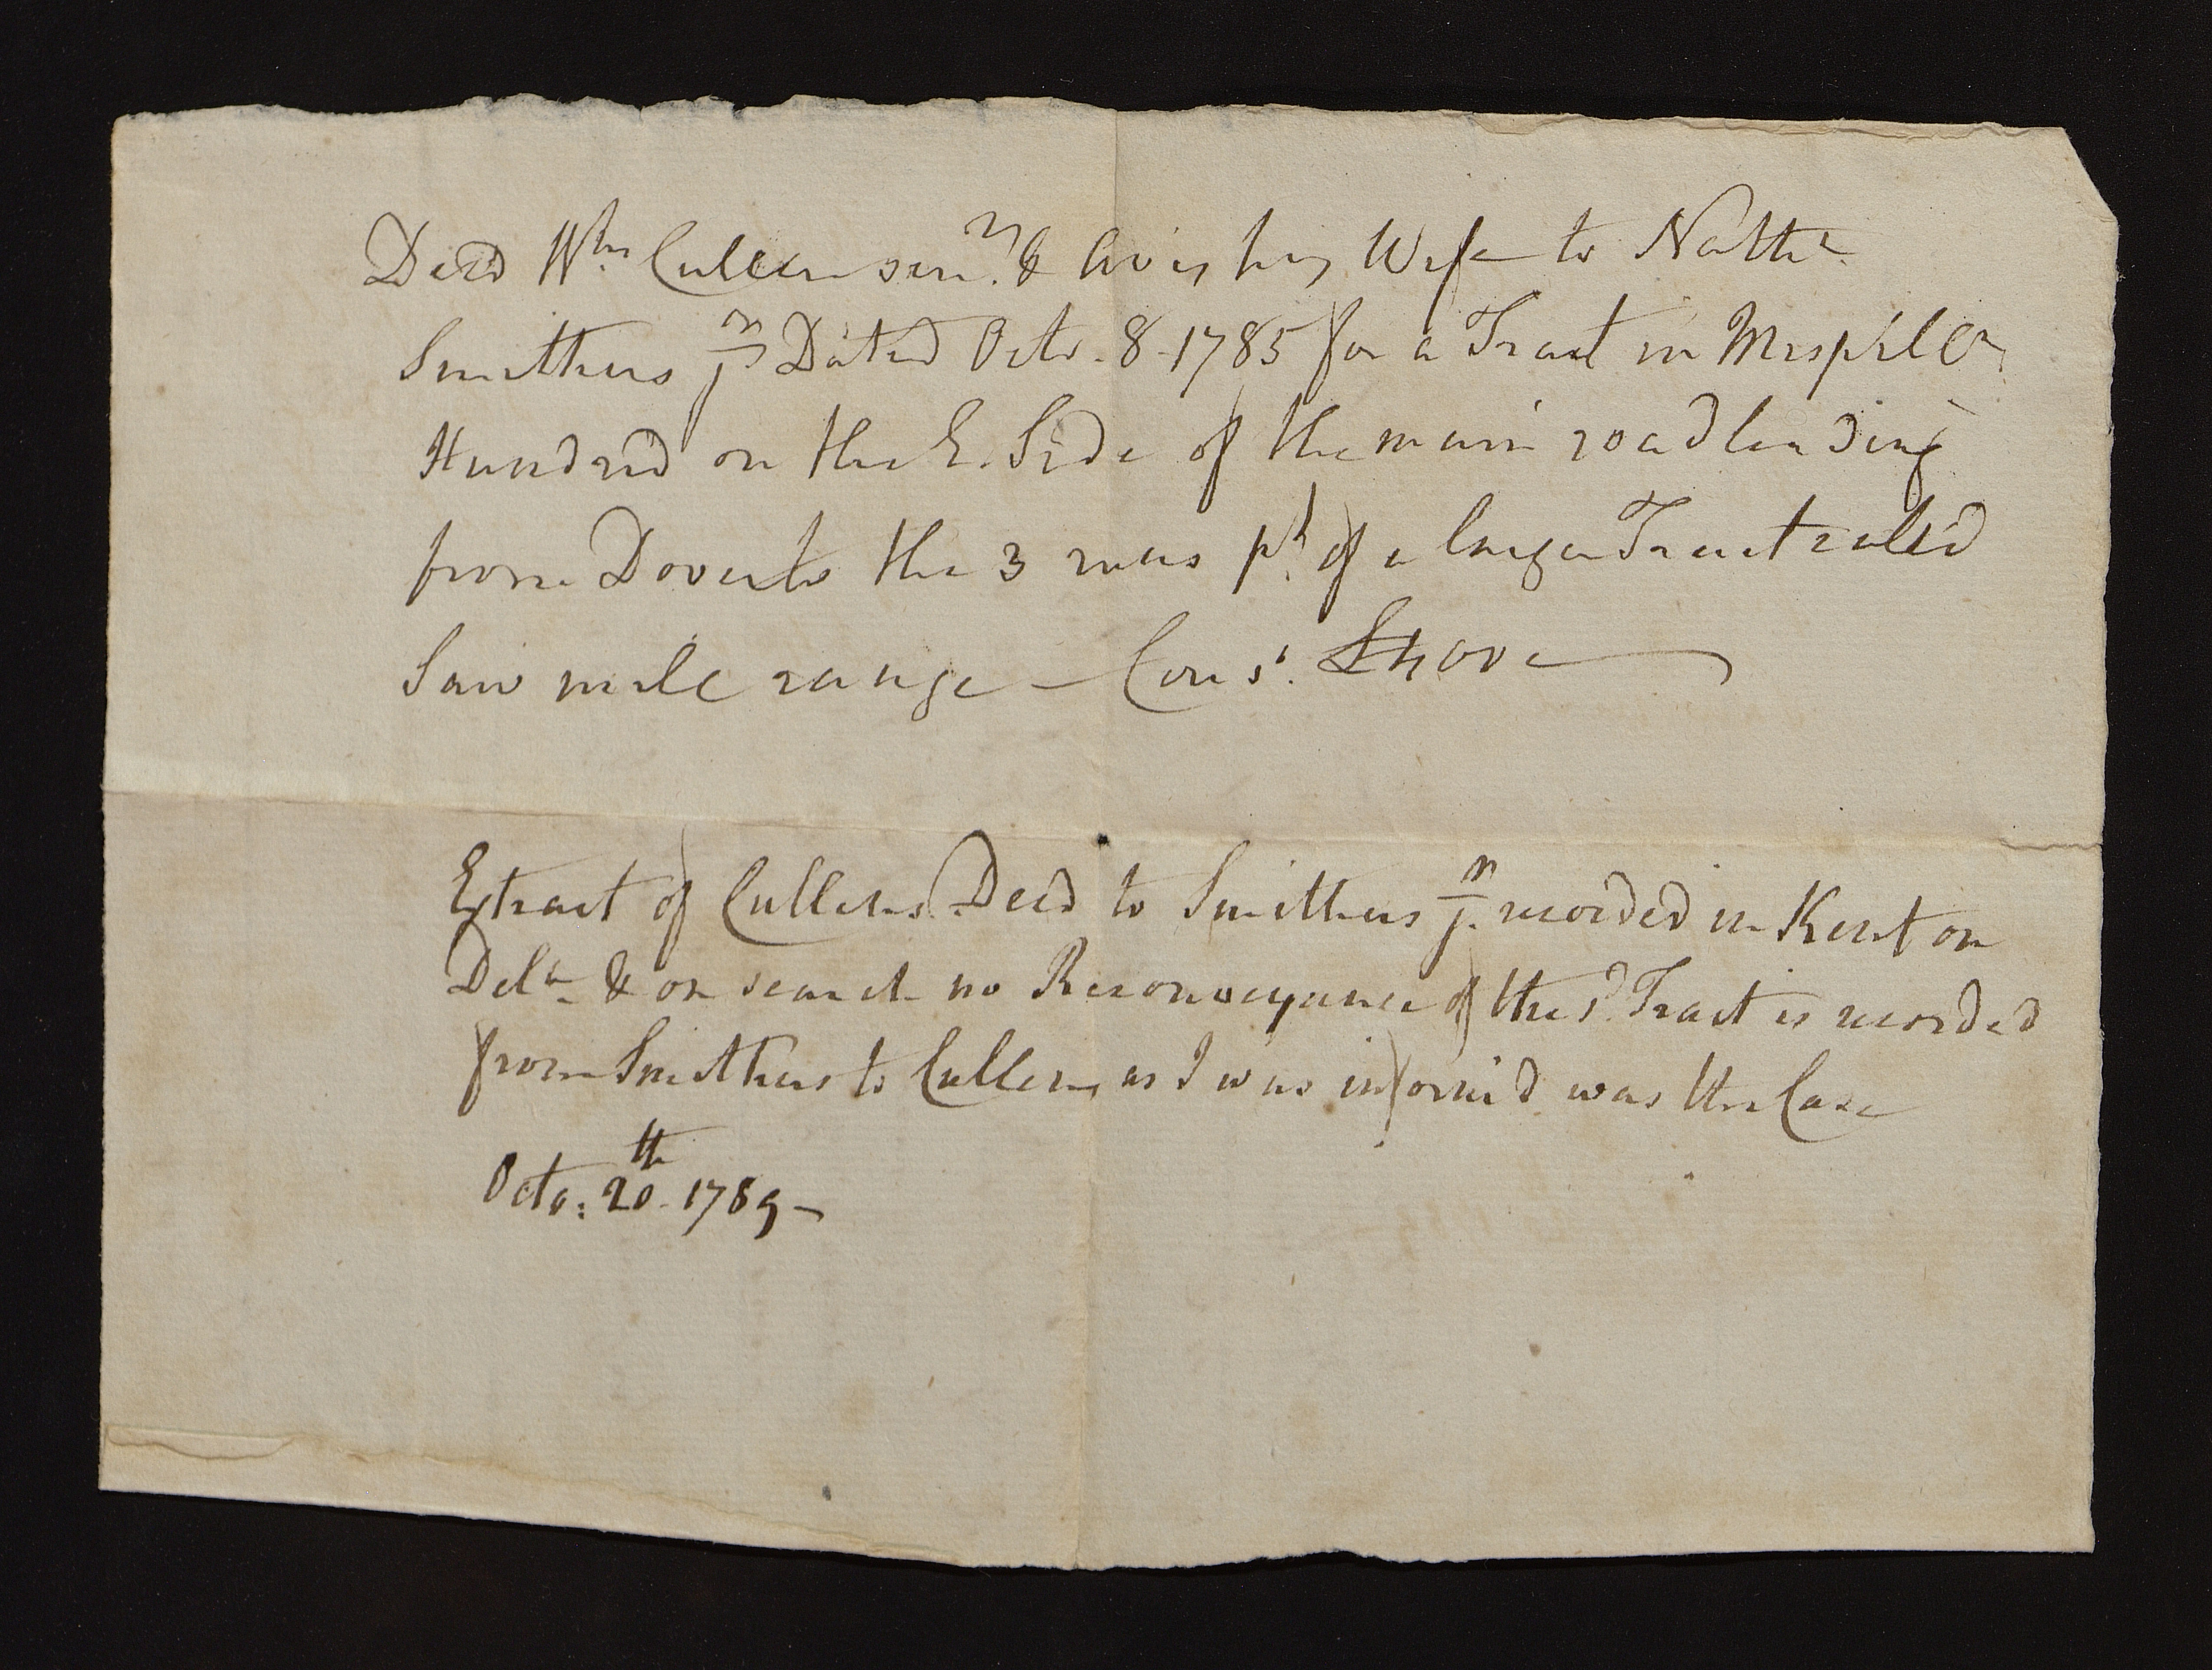 Deed Wm Cullen senr. & Avis his Wife to Nathl.
Smithers jr Dated Octo. 8. 1785 for a Tract in Mispillen
Hundred on the E. Side of the main road leading
from Dover to the 3 runs pt. of a larger Tract called
Saw mill range – Cons.
Extract of Cullens Deed to Smithers jr. recorded in Kent on
Dela. & on search no Reconveyance of the sd. Tract is recorded
from Smithers to Cullen, as I was inform'd was the Case
Octo: 20th. 1789 –